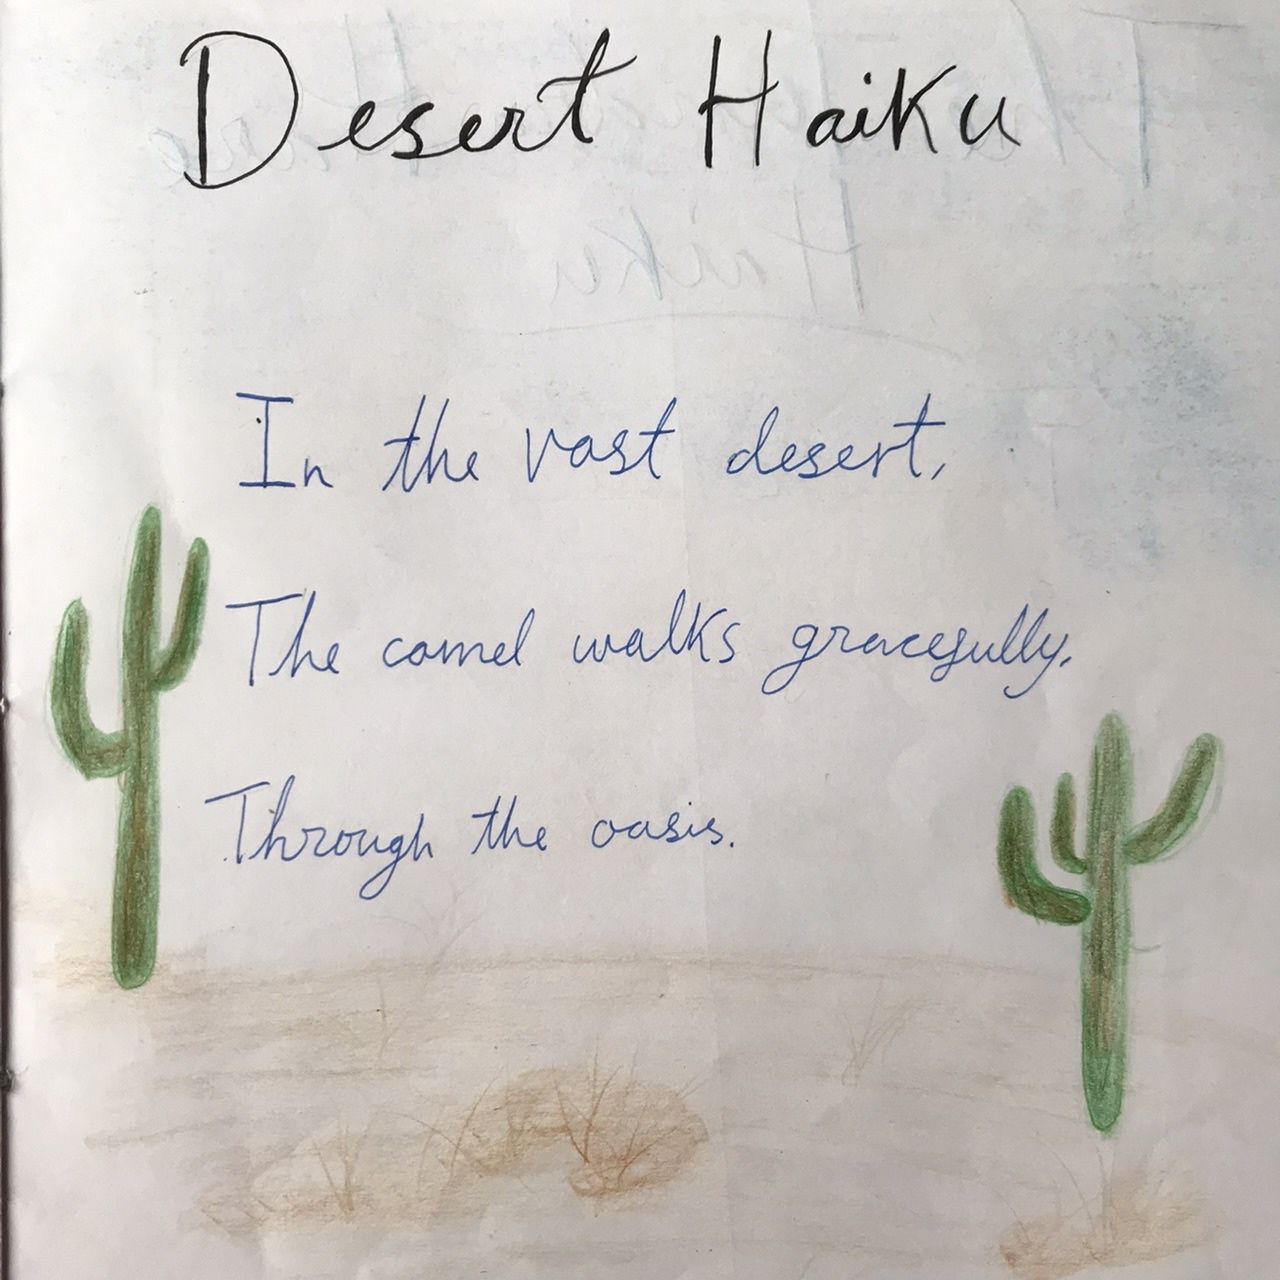 Desert Haiku
In the vast desert,
The camel walks gracefully,
Through the oasis.